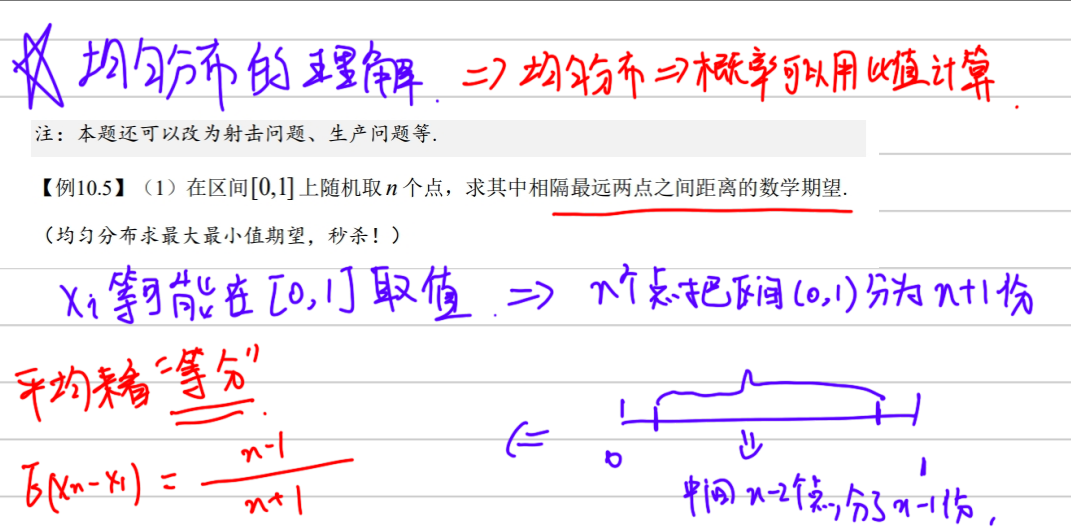 均匀分布的理解. ⇒ 均匀分布 ⇒ 概率可以用比值计算.
注：本题还可以改为射击问题、生产问题等.
【例10.5】（1）在区间[0,1]上随机取n个点，求其中相隔最远两点之间距离的数学期望.
（均匀分布求最大最小值期望，秒杀！）
Xi等可能在[0,1]取值. ⇒ n个点把区间(0,1)分为n+1份
平均来看"等分".
0 1
⇐ ⇓
中间n-2个点,分了n-1份.
E(Xn-X1) = n-1/n+1